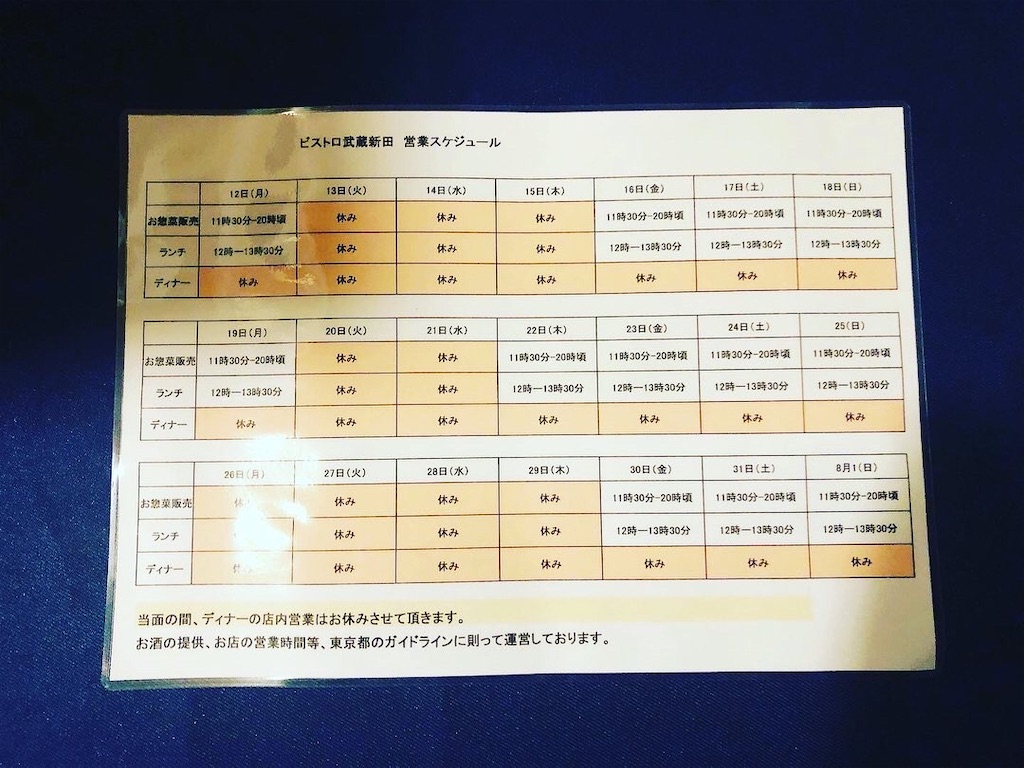 ビストロ武蔵新田 営業スケジュール
12日(月) 13日(火) 14日(水) 15日(木) 16日(金) 17日(土) 18日(日)
お惣菜販売 11時30分-20時頃 休み 休み 休み 11時30分-20時頃 11時30分-20時頃 11時30分-20時頃
ランチ 12時ー13時30分 休み 休み 休み 12時ー13時30分 12時ー13時30分 12時ー13時30分
ディナー 休み 休み 休み 休み 休み 休み 休み
19日(月) 20日(火) 21日(水) 22日(木) 23日(金) 24日(土) 25(日)
お惣菜販売 11時30分-20時頃 休み 休み 11時30分-20時頃 11時30分-20時頃 11時30分-20時頃 11時30分-20時頃
ランチ 12時ー13時30分 休み 休み 12時ー13時30分 12時ー13時30分 12時ー13時30分 12時ー13時30分
ディナー 休み 休み 休み 休み 休み 休み 休み
26日(月) 27日(火) 28日(水) 29日(木) 30日(金) 31日(土) 8月1(日)
お惣菜販売 休み 休み 休み 休み 11時30分-20時頃 11時30分-20時頃 11時30分-20時頃
ランチ 休み 休み 休み 12時ー13時30分 12時ー13時30分 12時ー13時30分
ディナー 休み 休み 休み 休み 休み 休み 休み
当面の間、ディナーの店内営業はお休みさせて頂きます。
お酒の提供、お店の営業時間等、東京都のガイドラインに則って運営しております。